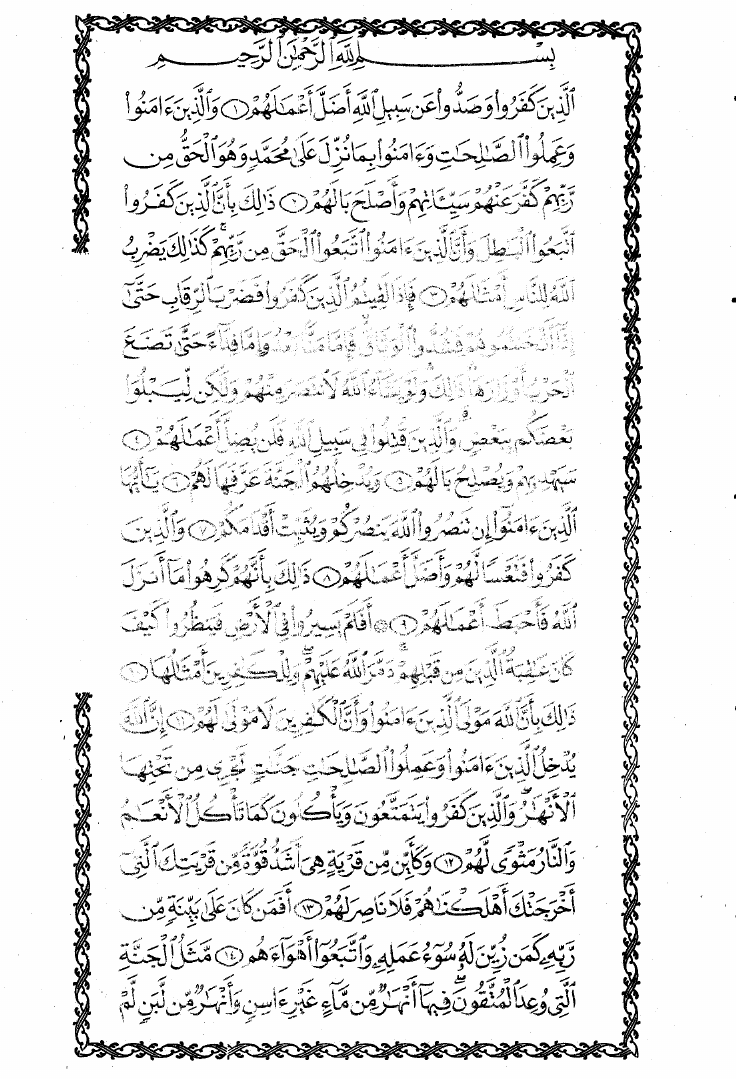 بِسْمِ ٱللَّهِ ٱلرَّحْمَٰنِ ٱلرَّحِيمِ
ٱلَّذِينَ كَفَرُوا۟ وَصَدُّوا۟ عَن سَبِيلِ ٱللَّهِ أَضَلَّ أَعْمَٰلَهُمْ ١ وَٱلَّذِينَ ءَامَنُوا۟
وَعَمِلُوا۟ ٱلصَّٰلِحَٰتِ وَءَامَنُوا۟ بِمَا نُزِّلَ عَلَىٰ مُحَمَّدٍ وَهُوَ ٱلْحَقُّ مِن
رَّبِّهِمْ كَفَّرَ عَنْهُمْ سَيِّـَٔاتِهِمْ وَأَصْلَحَ بَالَهُمْ ٢ ذَٰلِكَ بِأَنَّ ٱلَّذِينَ كَفَرُوا۟
ٱتَّبَعُوا۟ ٱلْبَٰطِلَ وَأَنَّ ٱلَّذِينَ ءَامَنُوا۟ ٱتَّبَعُوا۟ ٱلْحَقَّ مِن رَّبِّهِمْ ۚ كَذَٰلِكَ يَضْرِبُ
ٱللَّهُ لِلنَّاسِ أَمْثَٰلَهُمْ ٣ فَإِذَا لَقِيتُمُ ٱلَّذِينَ كَفَرُوا۟ فَضَرْبَ ٱلرِّقَابِ حَتَّىٰٓ
إِذَآ أَثْخَنتُمُوهُمْ فَشُدُّوا۟ ٱلْوَثَاقَ فَإِمَّا مَنًّۢا بَعْدُ وَإِمَّا فِدَآءً حَتَّىٰ تَضَعَ
ٱلْحَرْبُ أَوْزَارَهَا ۚ ذَٰلِكَ وَلَوْ يَشَآءُ ٱللَّهُ لَٱنتَصَرَ مِنْهُمْ وَلَٰكِن لِّيَبْلُوَا۟
بَعْضَكُم بِبَعْضٍ ۗ وَٱلَّذِينَ قُتِلُوا۟ فِى سَبِيلِ ٱللَّهِ فَلَن يُضِلَّ أَعْمَٰلَهُمْ ٤
سَيَهْدِيهِمْ وَيُصْلِحُ بَالَهُمْ ٥ وَيُدْخِلُهُمُ ٱلْجَنَّةَ عَرَّفَهَا لَهُمْ ٦ يَٰٓأَيُّهَا
ٱلَّذِينَ ءَامَنُوٓا۟ إِن تَنصُرُوا۟ ٱللَّهَ يَنصُرْكُمْ وَيُثَبِّتْ أَقْدَامَكُمْ ٧ وَٱلَّذِينَ
كَفَرُوا۟ فَتَعْسًا لَّهُمْ وَأَضَلَّ أَعْمَٰلَهُمْ ٨ ذَٰلِكَ بِأَنَّهُمْ كَرِهُوا۟ مَآ أَنزَلَ
ٱللَّهُ فَأَحْبَطَ أَعْمَٰلَهُمْ ٩ ۞ أَفَلَمْ يَسِيرُوا۟ فِى ٱلْأَرْضِ فَيَنظُرُوا۟ كَيْفَ
كَانَ عَٰقِبَةُ ٱلَّذِينَ مِن قَبْلِهِمْ ۚ دَمَّرَ ٱللَّهُ عَلَيْهِمْ ۖ وَلِلْكَٰفِرِينَ أَمْثَٰلُهَا ١٠
ذَٰلِكَ بِأَنَّ ٱللَّهَ مَوْلَى ٱلَّذِينَ ءَامَنُوا۟ وَأَنَّ ٱلْكَٰفِرِينَ لَا مَوْلَىٰ لَهُمْ ١١ إِنَّ ٱللَّهَ
يُدْخِلُ ٱلَّذِينَ ءَامَنُوا۟ وَعَمِلُوا۟ ٱلصَّٰلِحَٰتِ جَنَّٰتٍ تَجْرِى مِن تَحْتِهَا
ٱلْأَنْهَٰرُ ۖ وَٱلَّذِينَ كَفَرُوا۟ يَتَمَتَّعُونَ وَيَأْكُلُونَ كَمَا تَأْكُلُ ٱلْأَنْعَٰمُ
وَٱلنَّارُ مَثْوًى لَّهُمْ ١٢ وَكَأَيِّن مِّن قَرْيَةٍ هِىَ أَشَدُّ قُوَّةً مِّن قَرْيَتِكَ ٱلَّتِىٓ
أَخْرَجَتْكَ أَهْلَكْنَٰهُمْ فَلَا نَاصِرَ لَهُمْ ١٣ أَفَمَن كَانَ عَلَىٰ بَيِّنَةٍ مِّن
رَّبِّهِۦ كَمَن زُيِّنَ لَهُۥ سُوٓءُ عَمَلِهِۦ وَٱتَّبَعُوٓا۟ أَهْوَآءَهُم ١٤ مَّثَلُ ٱلْجَنَّةِ
ٱلَّتِى وُعِدَ ٱلْمُتَّقُونَ ۖ فِيهَآ أَنْهَٰرٌ مِّن مَّآءٍ غَيْرِ ءَاسِنٍ وَأَنْهَٰرٌ مِّن لَّبَنٍ لَّمْ